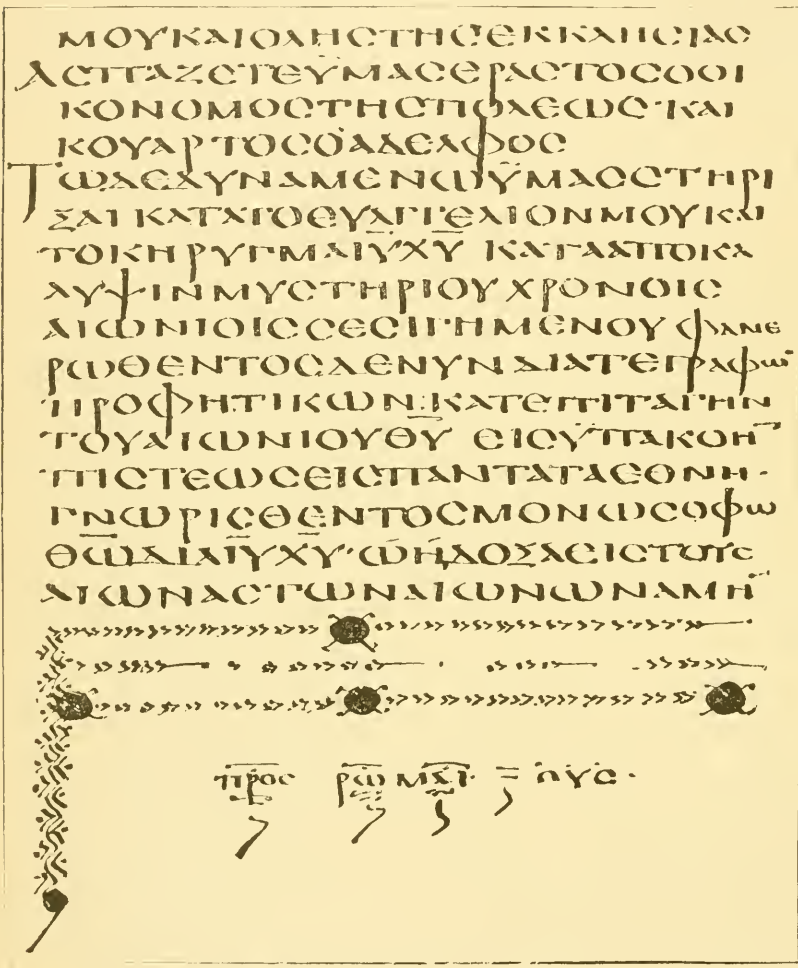 ΜΟΥΚΑΙΟΛΗϹΤΗϹΕΚΚΛΗϹΙΑϹ
ΑϹΠΑΖΕΤΕΫΜΑϹΕΡΑϹΤΟϹΟΟΙ
ΚΟΝΟΜΟϹΤΗϹΠΟΛΕΩϹ·ΚΑΙ
ΚΟΥΑΡΤΟϹΟΑΔΕΛΦΟϹ
ΤΩΔΕΔΥΝΑΜΕΝΩΫΜΑϹϹΤΗΡΙ
ΞΑΙΚΑΤΑΤΟΕΥΑΓΓΕΛΙΟΝΜΟΥΚΑΙ
ΤΟΚΗΡΥΓΜΑΙ̅Υ̅Χ̅Υ̅ ΚΑΤΑΑΠΟΚΑ
ΛΥΨΙΝΜΥϹΤΗΡΙΟΥΧΡΟΝΟΙϹ
ΑΙΩΝΙΟΙϹϹΕϹΙΓΗΜΕΝΟΥΦΑΝΕ
ΡΩΘΕΝΤΟϹΔΕΝΥΝΔΙΑΤΕΓΡΑΦΩ̅
ΠΡΟΦΗΤΙΚΩΝ·ΚΑΤΕΠΙΤΑΓΗΝ
ΤΟΥΑΙΩΝΙΟΥΘ̅Υ̅ ΕΙϹΫΠΑΚΟΗ̅
ΠΙϹΤΕΩϹΕΙϹΠΑΝΤΑΤΑΕΘΝΗ·
ΓΝΩΡΙϹΘΕΝΤΟϹΜΟΝΩϹΟΦΩ
Θ̅Ω̅ΔΙΑΙ̅Υ̅Χ̅Υ̅·ΩΗΔΟΞΑΕΙϹΤΟΥϹ
ΑΙΩΝΑϹΤΩΝΑΙΩΝΩΝΑΜΗ̅
ΠΡΟϹ ΡΩΜΑΙ ΟΥϹ·